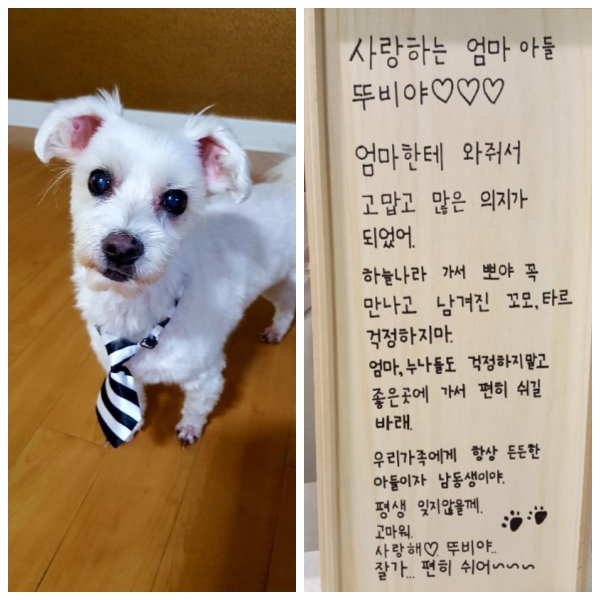 사랑하는 엄마 아들
뚜비야♡♡♡
엄마한테 와줘서
고맙고 많은 의지가
되었어.
하늘나라 가서 뽀야 꼭
만나고 남겨진 꼬모,타르
걱정하지마.
엄마,누나들도 걱정하지말고
좋은곳에 가서 편히 쉬길
바래.
우리가족에게 항상 든든한
아들이자 남동생이야.
평생 잊지않을께.
고마워.
사랑해♡ 뚜비야..
잘가... 편히 쉬어~~~